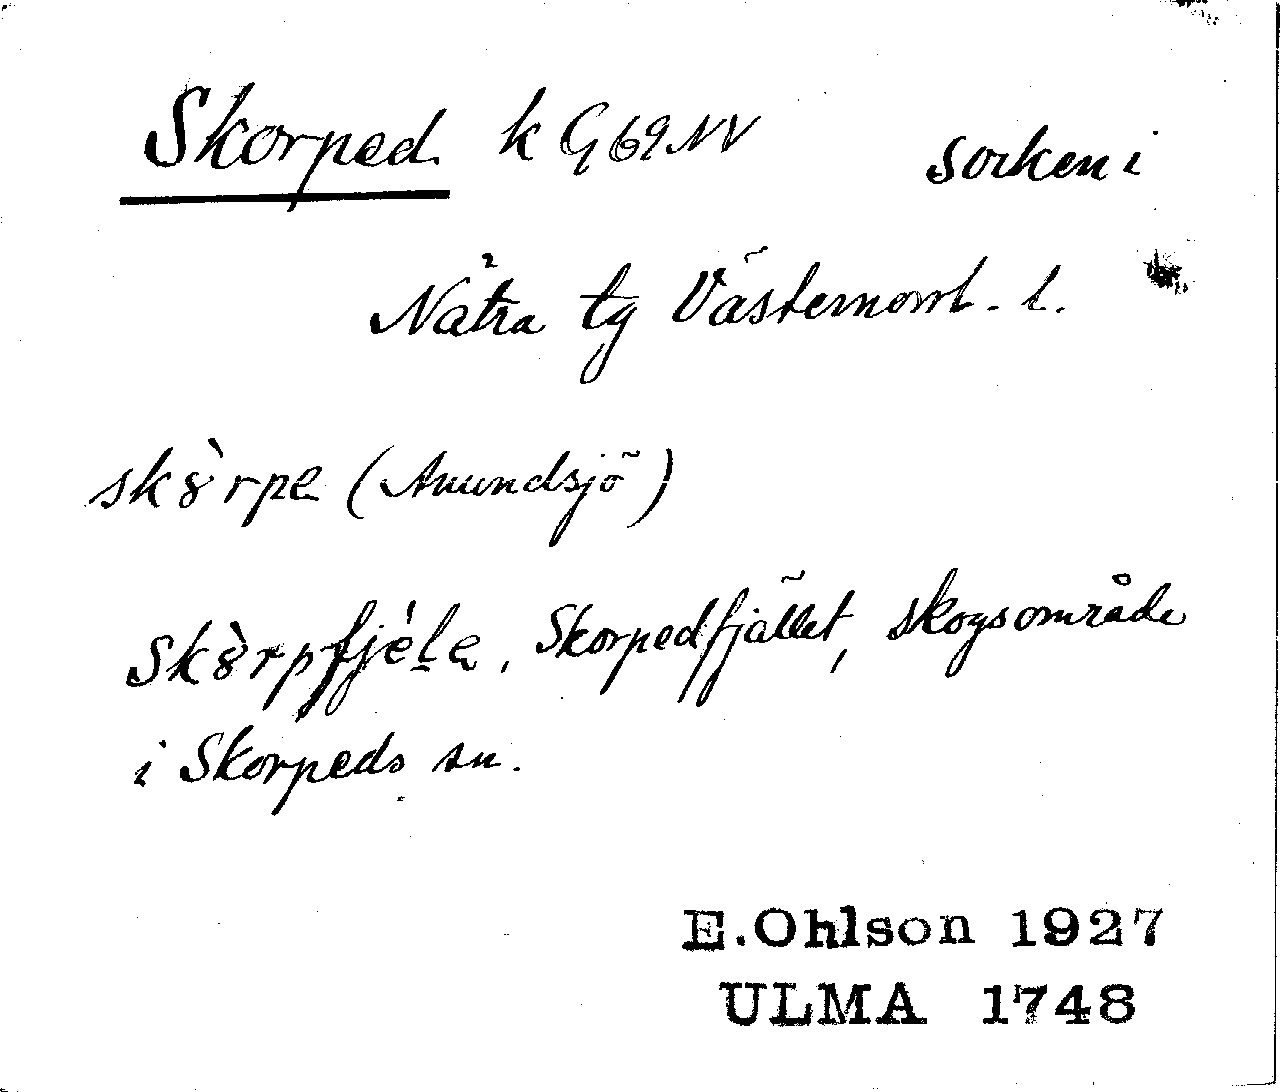 Skorped k G 69 NV socken i
Nätra tg Västernorrl. l.
skò̱rpe (Anundsjö)
skò̱rpfjèḷa, Skorpedfjället, skogsområde
i Skorpeds sn.
E.Ohlson 1927
ULMA 1748